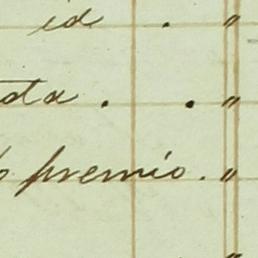 id . "
da . . "
premio . "